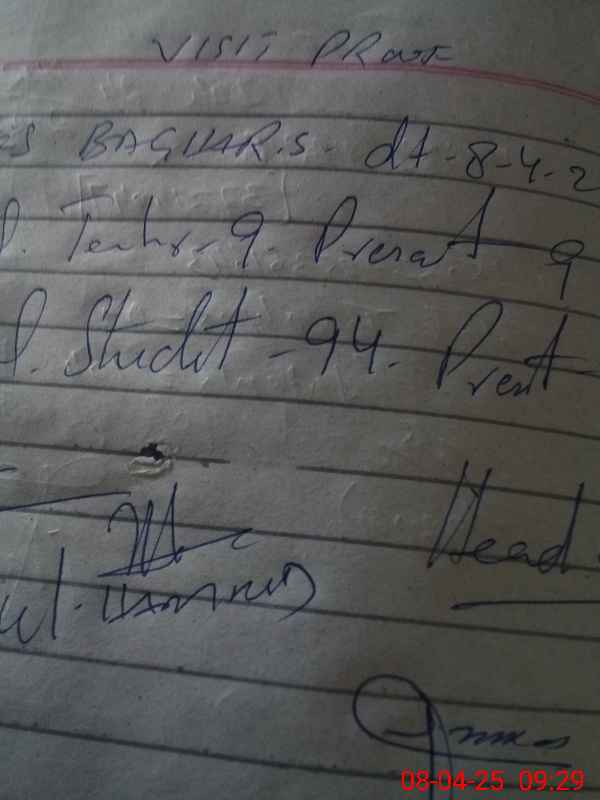 VISIT PROOF
GS BAGUAR.S. dt-8-4-2
l. Techr-9. Presat 9
l. Studt-94. Prest-
Head.
08-04-25 09:29